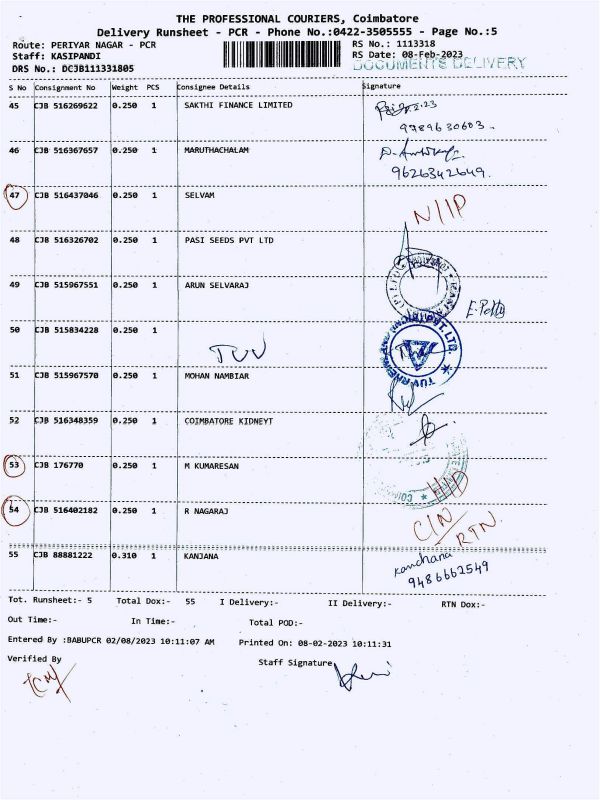 THE PROFESSIONAL COURIERS, Coimbatore
Delivery Runsheet - PCR - Phone No.:0422-3505555 - Page No.:5
Route: PERIYAR NAGAR - PCR
RS No.: 1113318
Staff: KASIPANDI
RS Date: 08-Feb-2023
DRS No.: DCJB111331805
DOCUMENTS DELIVERY
S No Consignment No Weight PCS Consignee Details Signature
45 CJB 516269622 0.250 1 SAKTHI FINANCE LIMITED
9789630603.
46 CJB 516367657 0.250 1 MARUTHACHALAM
9626342649.
47 CJB 516437046 0.250 1 SELVAM
N/IP
48 CJB 516326702 0.250 1 PASI SEEDS PVT LTD
49 CJB 515967551 0.250 1 ARUN SELVARAJ
50 CJB 515834228 0.250 1
TUV
51 CJB 515967570 0.250 1 MOHAN NAMBIAR
52 CJB 516348359 0.250 1 COIMBATORE KIDNEYT
53 CJB 176770 0.250 1 M KUMARESAN
54 CJB 516402182 0.250 1 R NAGARAJ
C/N
RTN
55 CJB 88881222 0.310 1 KANJANA
kanchana
9486662549
Tot. Runsheet:- 5 Total Dox:- 55 I Delivery:- II Delivery:- RTN Dox:-
Out Time:- In Time:- Total POD:-
Entered By :BABUPCR 02/08/2023 10:11:07 AM Printed On: 08-02-2023 10:11:31
Verified By Staff Signature